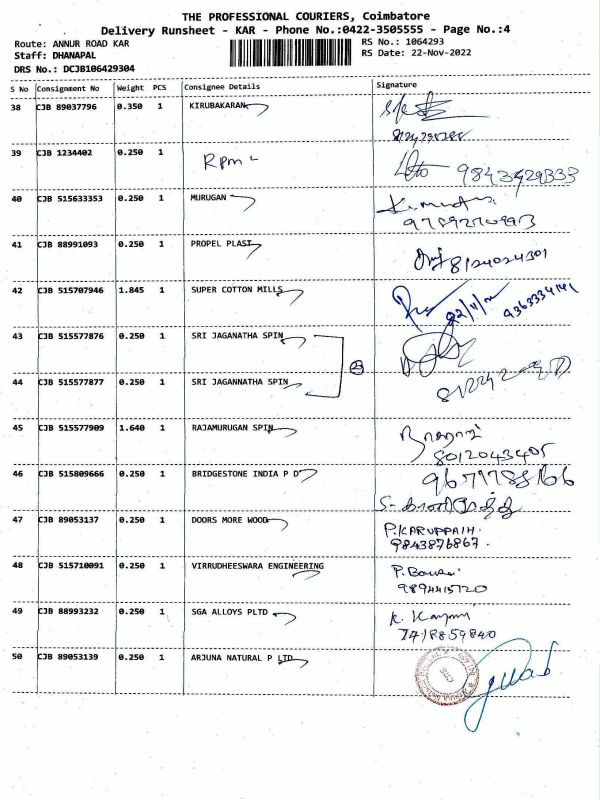 THE PROFESSIONAL COURIERS, Coimbatore
Delivery Runsheet - KAR - Phone No.:0422-3505555 - Page No.:4
Route: ANNUR ROAD KAR RS No.: 1064293
Staff: DHANAPAL RS Date: 22-Nov-2022
DRS No.: DCJB106429304
S No Consignment No Weight PCS Consignee Details Signature
38 CJB 89037796 0.350 1 KIRUBAKARAN
39 CJB 1234402 0.250 1 Rpm 9843429333
40 CJB 515633353 0.250 1 MURUGAN
41 CJB 88991093 0.250 1 PROPEL PLAST 8124024301
42 CJB 515707946 1.845 1 SUPER COTTON MILLS 22/11/22 9363334141
43 CJB 515577876 0.250 1 SRI JAGANATHA SPIN
44 CJB 515577877 0.250 1 SRI JAGANNATHA SPIN
45 CJB 515577909 1.640 1 RAJAMURUGAN SPIN
8012043405
46 CJB 515809666 0.250 1 BRIDGESTONE INDIA P D 9671788166
47 CJB 89053137 0.250 1 DOORS MORE WOOD P.KARUPPAIH.
9843876867.
48 CJB 515710091 0.250 1 VIRRUDHEESWARA ENGINEERING
9894415720
49 CJB 88993232 0.250 1 SGA ALLOYS PLTD
7418859840
50 CJB 89053139 0.250 1 ARJUNA NATURAL P LTD